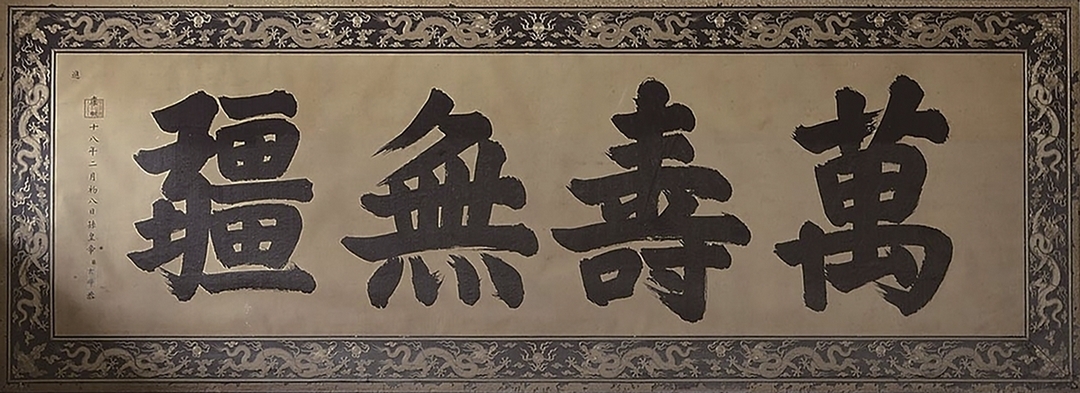 萬壽無疆
十八年二月初八日孫皇帝